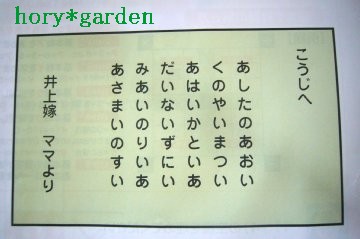 hory*garden
こうじへ
あしたのあおい
くのやいまつい
あはいかといあ
だいないずにい
みあいのりいあ
あさまいのすい
井上嫁 ママより